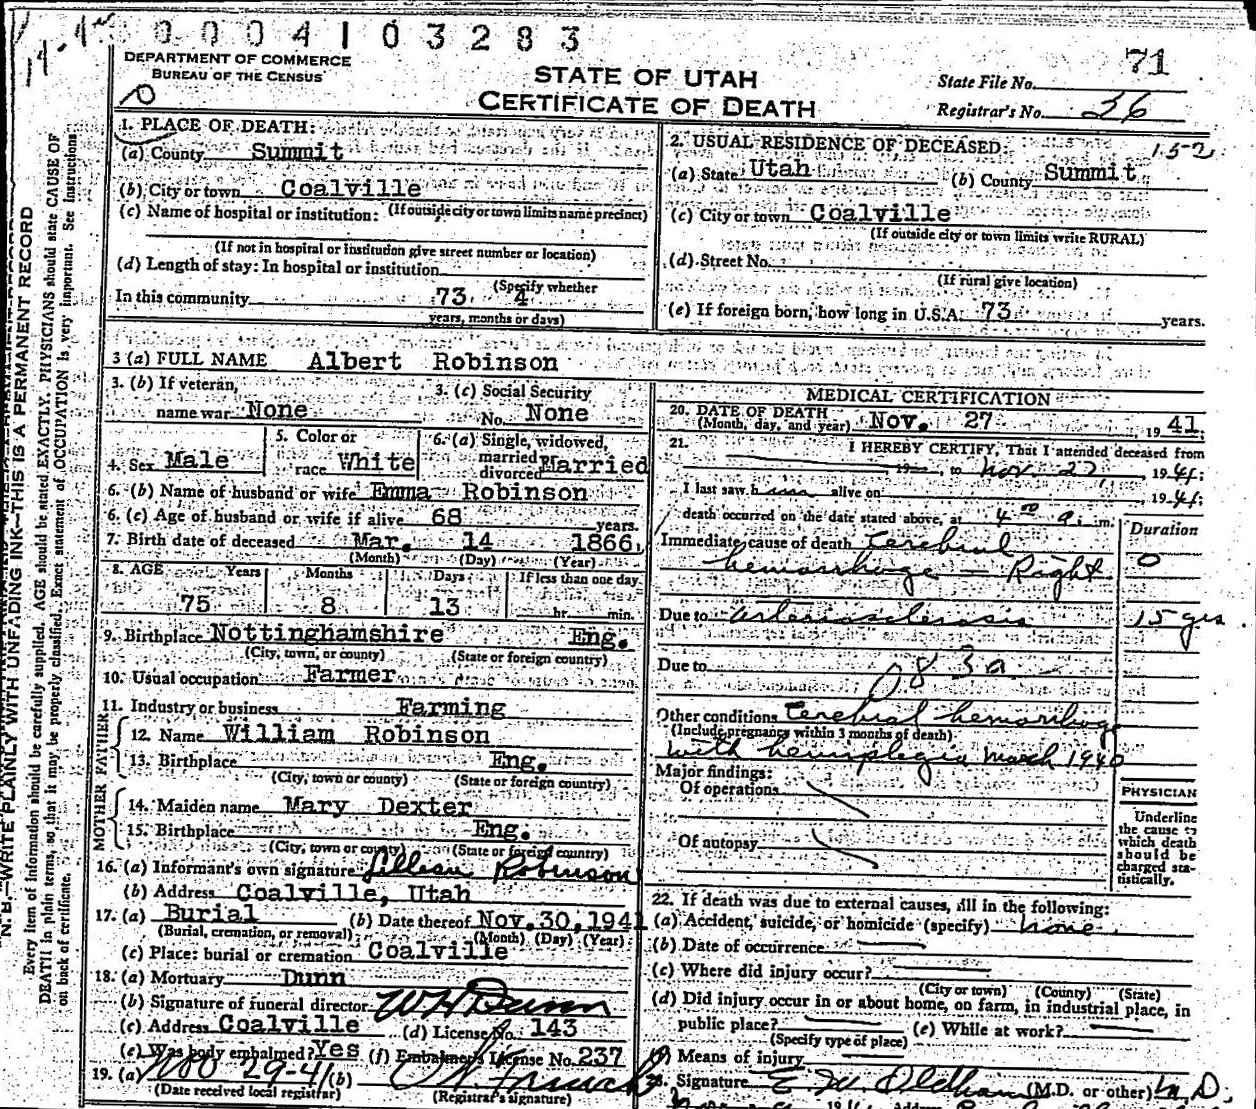 0004103283
DEPARTMENT OF COMMERCE
BUREAU OF THE CENSUS
STATE OF UTAH
CERTIFICATE OF DEATH
State File No. 71
Registrar's No. 36
1. PLACE OF DEATH:
(a) County Summit
(b) City or town Coalville
(c) Name of hospital or institution: (If outside city or town limits name precinct)
(If not in hospital or institution give street number or location)
(d) Length of stay: In hospital or institution
(Specify whether
In this community 73 4
years, months or days)
2. USUAL RESIDENCE OF DECEASED: 152
(a) State Utah (b) County Summit
(c) City or town Coalville
(If outside city or town limits write RURAL)
(d) Street No.
(If rural give location)
(e) If foreign born, how long in U.S.A. 73 years.
3 (a) FULL NAME Albert Robinson
3. (b) If veteran,
name war None
3. (c) Social Security
No. None
4. Sex Male
5. Color or
race White
6. (a) Single, widowed,
married
divorced Married
6. (b) Name of husband or wife Emma Robinson
6. (c) Age of husband or wife if alive 68 years.
7. Birth date of deceased Mar. 14 1866
(Month) (Day) (Year)
8. AGE Years Months Days If less than one day
75 8 13 hr. min.
9. Birthplace Nottinghamshire Eng.
(City, town, or county) (State or foreign country)
10. Usual occupation Farmer
11. Industry or business Farming
FATHER
12. Name William Robinson
13. Birthplace Eng.
(City, town or county) (State or foreign country)
MOTHER
14. Maiden name Mary Dexter
15. Birthplace Eng.
(City, town or county) (State or foreign country)
16. (a) Informant's own signature Lillean Robinson
(b) Address Coalville, Utah
17. (a) Burial (b) Date thereof Nov. 30, 1941
(Burial, cremation, or removal) (Month) (Day) (Year)
(c) Place: burial or cremation Coalville
18. (a) Mortuary Dunn
(b) Signature of funeral director W H Dunn
(c) Address Coalville (d) License No. 143
(e) Was body embalmed? Yes (f) Embalmer's License No. 237
19. (a) Nov 29-41 (b)
(Date received local registrar) (Registrar's signature)
MEDICAL CERTIFICATION
20. DATE OF DEATH
(Month, day, and year) Nov. 27, 1941.
21. I HEREBY CERTIFY, That I attended deceased from
19 , to Nov 27, 1941;
I last saw him alive on 1941;
death occurred on the date stated above, at 4 00 a. m.
Duration
Immediate cause of death Cerebral
hemorrhage - Right 0
Due to Arteriosclerosis 15 yrs
Due to
083a
Other conditions Cerebral hemorrhage
(Include pregnancy within 3 months of death)
with hemiplegia March 1940
Major findings:
Of operations
Of autopsy
PHYSICIAN
Underline
the cause to
which death
should be
charged sta-
tistically.
22. If death was due to external causes, fill in the following:
(a) Accident, suicide, or homicide (specify) none
(b) Date of occurrence
(c) Where did injury occur?
(City or town) (County) (State)
(d) Did injury occur in or about home, on farm, in industrial place, in
public place? (e) While at work?
(Specify type of place)
(f) Means of injury
Signature E. W. Oldham (M.D. or other) M.D.
N. B.—WRITE PLAINLY WITH UNFADING INK—THIS IS A PERMANENT RECORD
Every item of information should be carefully supplied. AGE should be stated EXACTLY. PHYSICIANS should state CAUSE OF
DEATH in plain terms, so that it may be properly classified. Exact statement of OCCUPATION is very important. See instructions
on back of certificate.